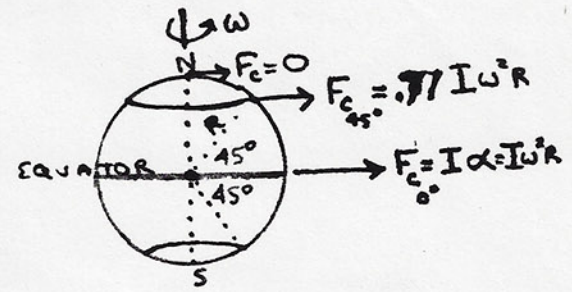 ω
N F_c = 0
F_c 45° = .71 I ω² R
R
45°
EQUATOR
F_c 0° = I α = I ω² R
45°
S